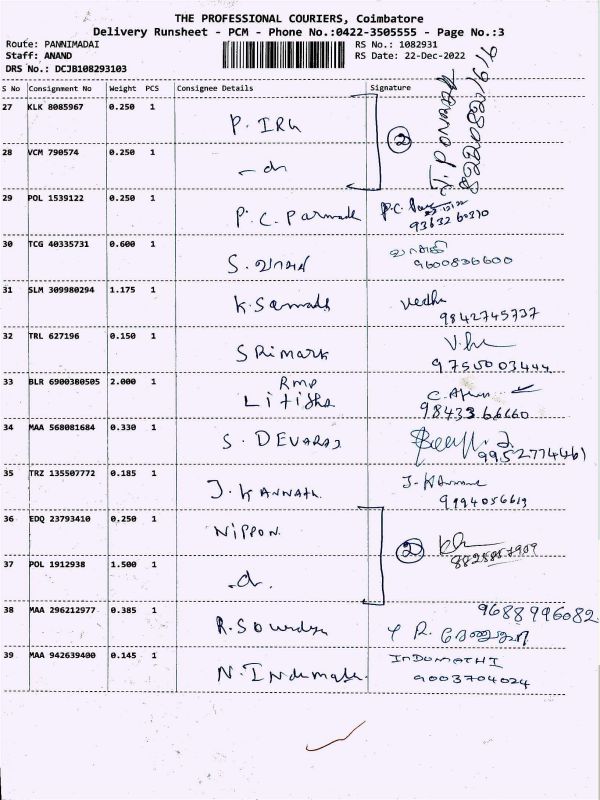 THE PROFESSIONAL COURIERS, Coimbatore
Delivery Runsheet - PCM - Phone No.:0422-3505555 - Page No.:3
Route: PANNIMADAI RS No.: 1082931
Staff: ANAND RS Date: 22-Dec-2022
DRS No.: DCJB108293103
S No Consignment No Weight PCS Consignee Details Signature
27 KLK 8085967 0.250 1 P. IRU
2
28 VCM 790574 0.250 1
29 POL 1539122 0.250 1 P. C. Parmade P.C.
93632 60310
30 TCG 40335731 0.600 1 S.
9600836600
31 SLM 309980294 1.175 1 K. Vedha
9842745737
32 TRL 627196 0.150 1 SRimark
9750003444
33 BLR 6900380505 2.000 1 Rmp
Litisha C.
98433 66660
34 MAA 568081684 0.330 1 S. DEVARAJ
9952777461
35 TRZ 135507772 0.185 1 J. KANNATH J.
9994056619
36 EDQ 23793410 0.250 1 NIPPON
2
37 POL 1912938 1.500 1
38 MAA 296212977 0.385 1 R. 9688996082
R.
39 MAA 942639400 0.145 1 N. Indumathi INDUMATHI
9003704024